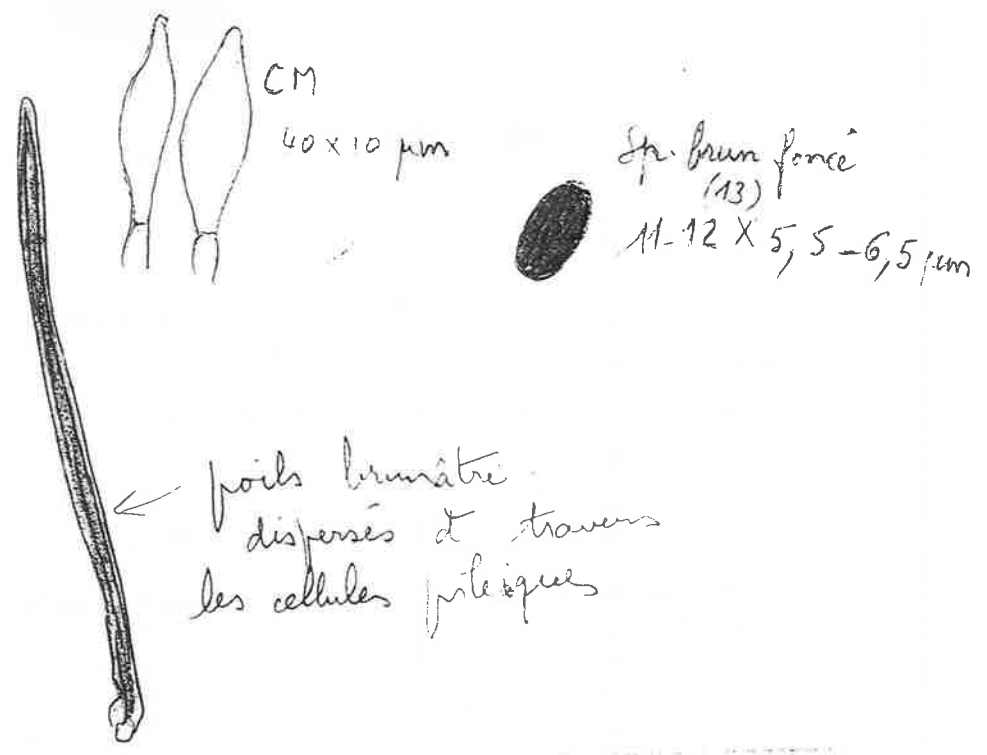 CM
40 x 10 µm
Sp. brun foncé
(13)
11-12 X 5,5-6,5 µm
poils brunâtre
dispersés à travers
les cellules piléiques